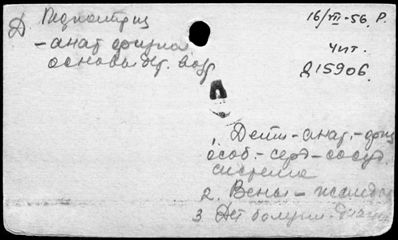 Д. Педиатрия
16/VII-56. Р.
- анат. физиол.
Чит.
основы дет. возр.
Д15906.
1. Дети - анат. - физ.
особ. - серд - сосуд.
система
2. Вены -
3. Дет болезни -